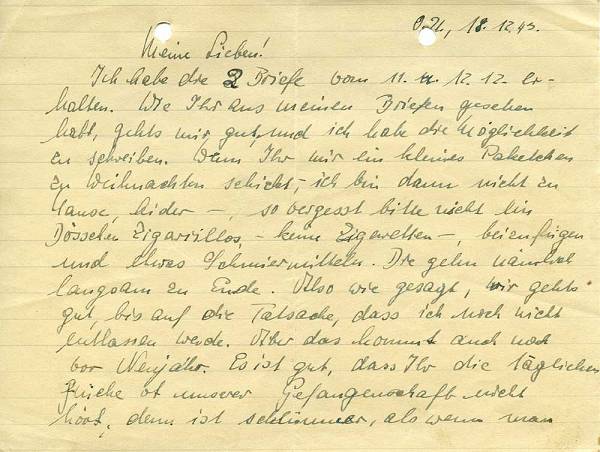 O.U., 18.12.45.
Meine Lieben!
Ich habe die 2 Briefe vom 11. u. 12.12. er-
halten. Wie Ihr aus meinen Briefen gesehen
habt, gehts mir gut, und ich habe die Möglichkeit
zu schreiben. Wenn Ihr mir ein kleines Paketchen
zu Weihnachten schickt, ich bin dann nicht zu
Hause, leider –, so vergesst bitte nicht ein
Döschen Zigarillos, – keine Zigaretten –, beizufügen
und etwas Schmiermitteln. Die gehn nämlich
langsam zu Ende. Also wie gesagt, mir gehts
gut, bis auf die Tatsache, dass ich noch nicht
entlassen werde. Aber das kommt auch noch
vor Neujahr. Es ist gut, dass Ihr die täglichen
unserer Gefangenschaft nicht
hört, denn ist schlimmer, als wenn man